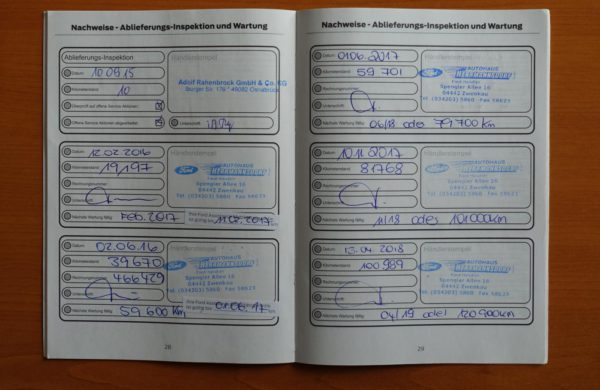 Nachweise - Ablieferungs-Inspektion und Wartung
Ablieferungs-Inspektion
Händlerstempel
Datum 10.09.15
Kilometerstand 10
Adolf Rahenbrock GmbH & Co. KG
Burger Str. 176 * 49082 Osnabrück
Überprüft auf offene Service Aktionen
Offene Service Aktionen abgearbeitet
Unterschrift
Datum 12.02.2016
Händlerstempel
Kilometerstand 19,197
Ford AUTOHAUS HERRMANNSDORF
Ford Händler
Spengler Allee 16
04442 Zwenkau
Rechnungsnummer
Tel. (034203) 5860 · Fax 58623
Unterschrift
Nächste Wartung fällig Feb. 2017
11.02.2017
Datum 02.06.16
Händlerstempel
Kilometerstand 39670
Ford AUTOHAUS HERRMANNSDORF
Ford Händler
Rechnungsnummer 466429
Spengler Allee 16
04442 Zwenkau
Tel. (034203) 5860 · Fax 58623
Unterschrift
Nächste Wartung fällig 59600 km
01.06.17
28
Nachweise - Ablieferungs-Inspektion und Wartung
Datum 01.06.2017
Händlerstempel
Kilometerstand 59 701
Ford AUTOHAUS HERRMANNSDORF
Ford Händler
Rechnungsnummer
Spengler Allee 16
04442 Zwenkau
Tel. (034203) 5860 · Fax 58623
Unterschrift
Nächste Wartung fällig 06/18 oder 79 700 km
Datum 10.11.2017
Händlerstempel
Kilometerstand 81768
Ford AUTOHAUS HERRMANNSDORF
Ford Händler
Rechnungsnummer
Spengler Allee 16
04442 Zwenkau
Tel. (034203) 5860 · Fax 58623
Unterschrift
Nächste Wartung fällig 11/18 oder 101000km
Datum 13.04.2018
Händlerstempel
Kilometerstand 100 989
Ford AUTOHAUS HERRMANNSDORF
Ford Händler
Rechnungsnummer
Spengler Allee 16
04442 Zwenkau
Tel. (034203) 5860 · Fax 58623
Unterschrift
Nächste Wartung fällig 04/19 oder 120900km
29